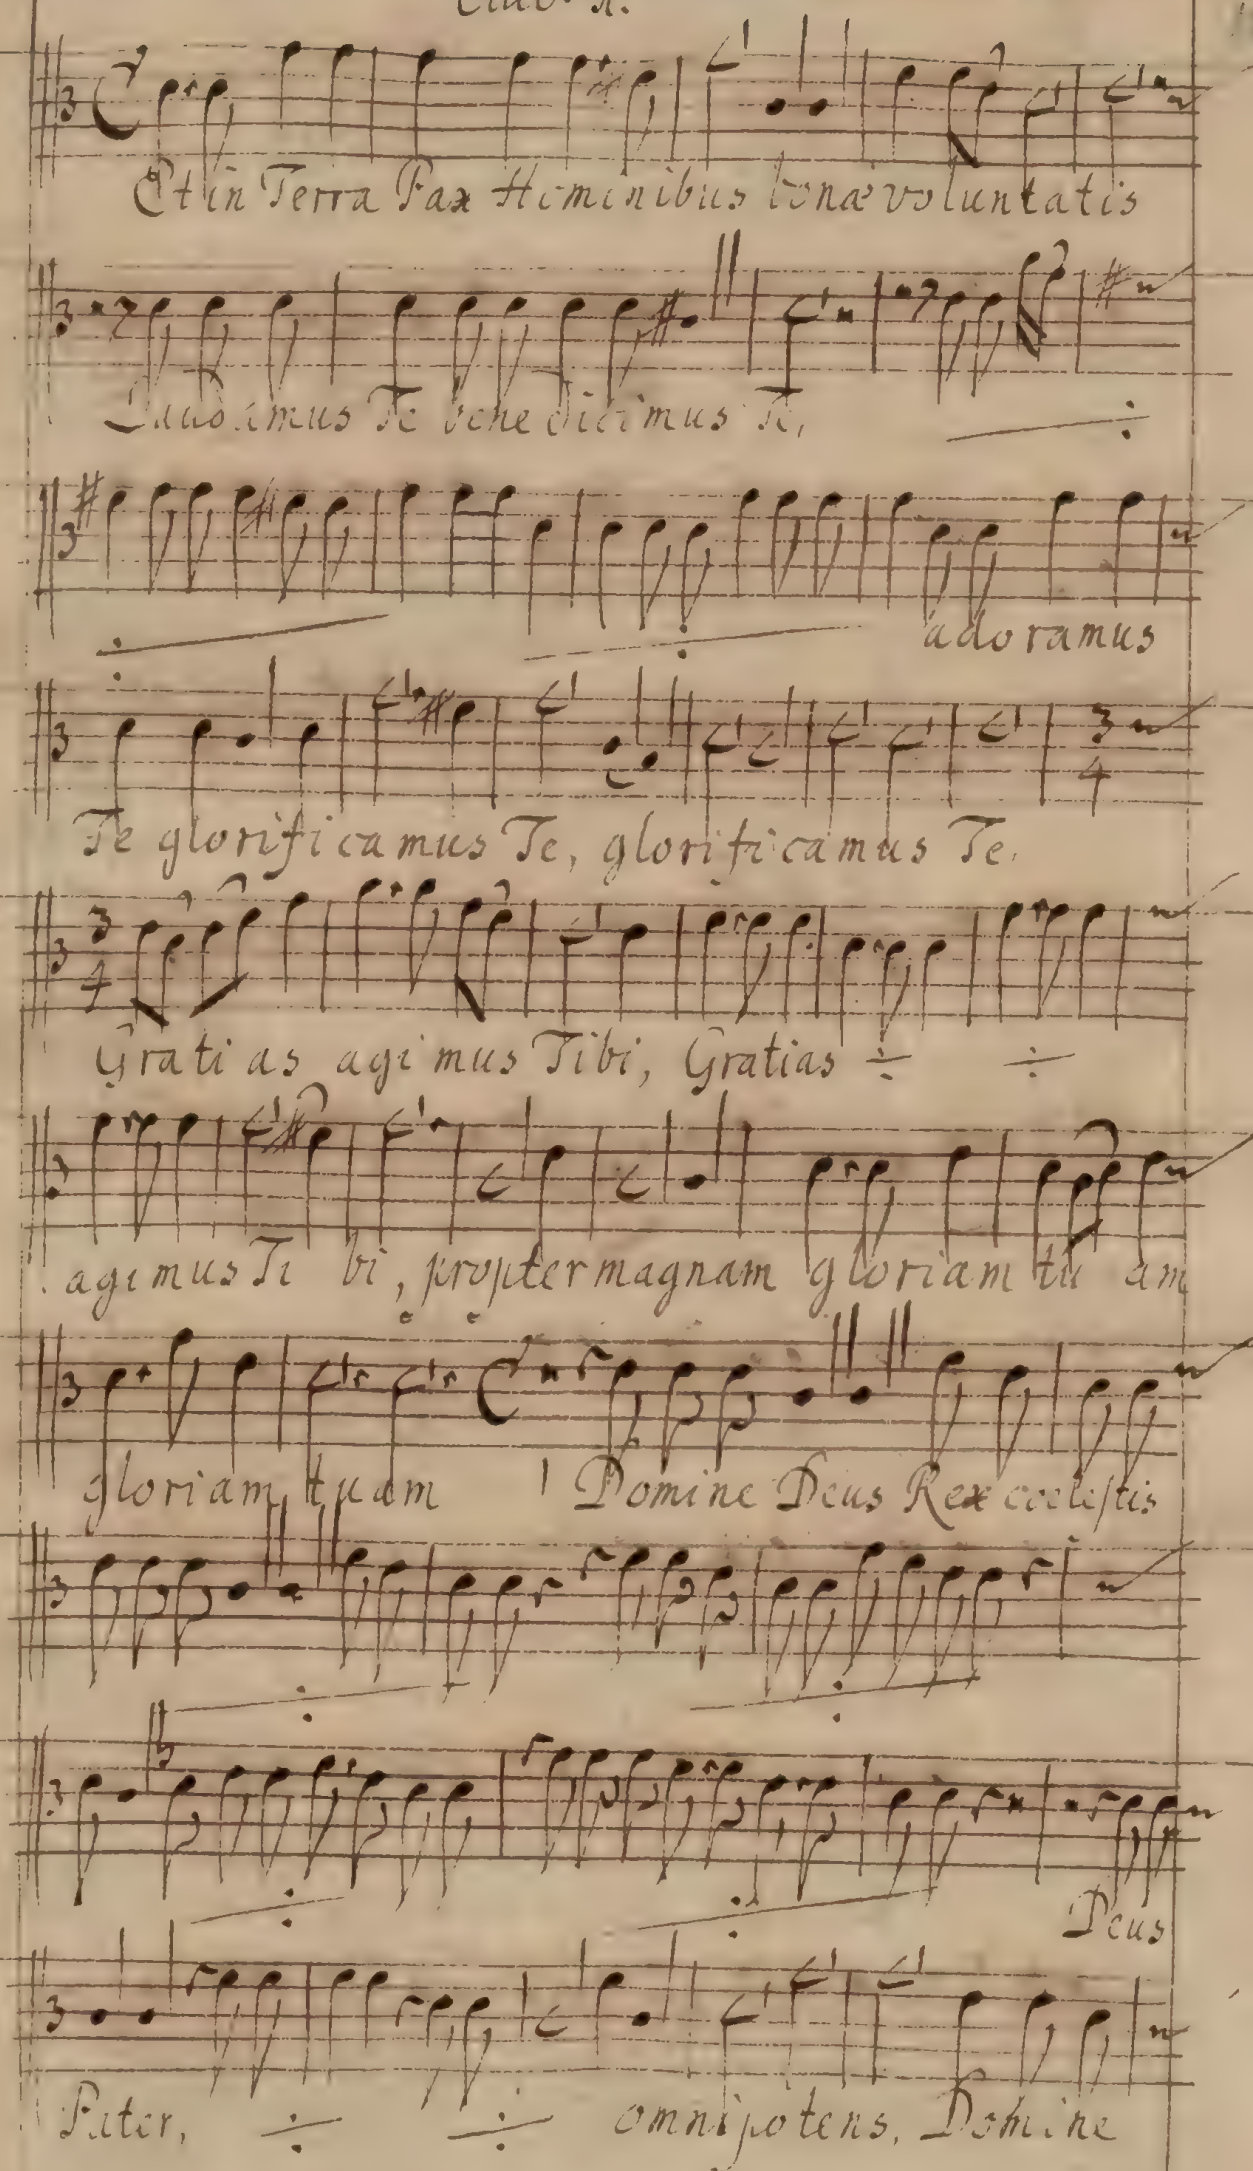 Et in Terra Pax Hominibus bonæ voluntatis
Laudamus Te benedicimus Te, ÷
÷ ÷ adoramus
Te glorificamus Te, glorificamus Te.
3 4
3 4
Gratias agimus Tibi, Gratias ÷ ÷
agimus Tibi, propter magnam gloriam tuam
gloriam tuam Domine Deus Rex coelestis
÷ ÷
÷ ÷ Deus
Pater, ÷ ÷ omnipotens, Domine